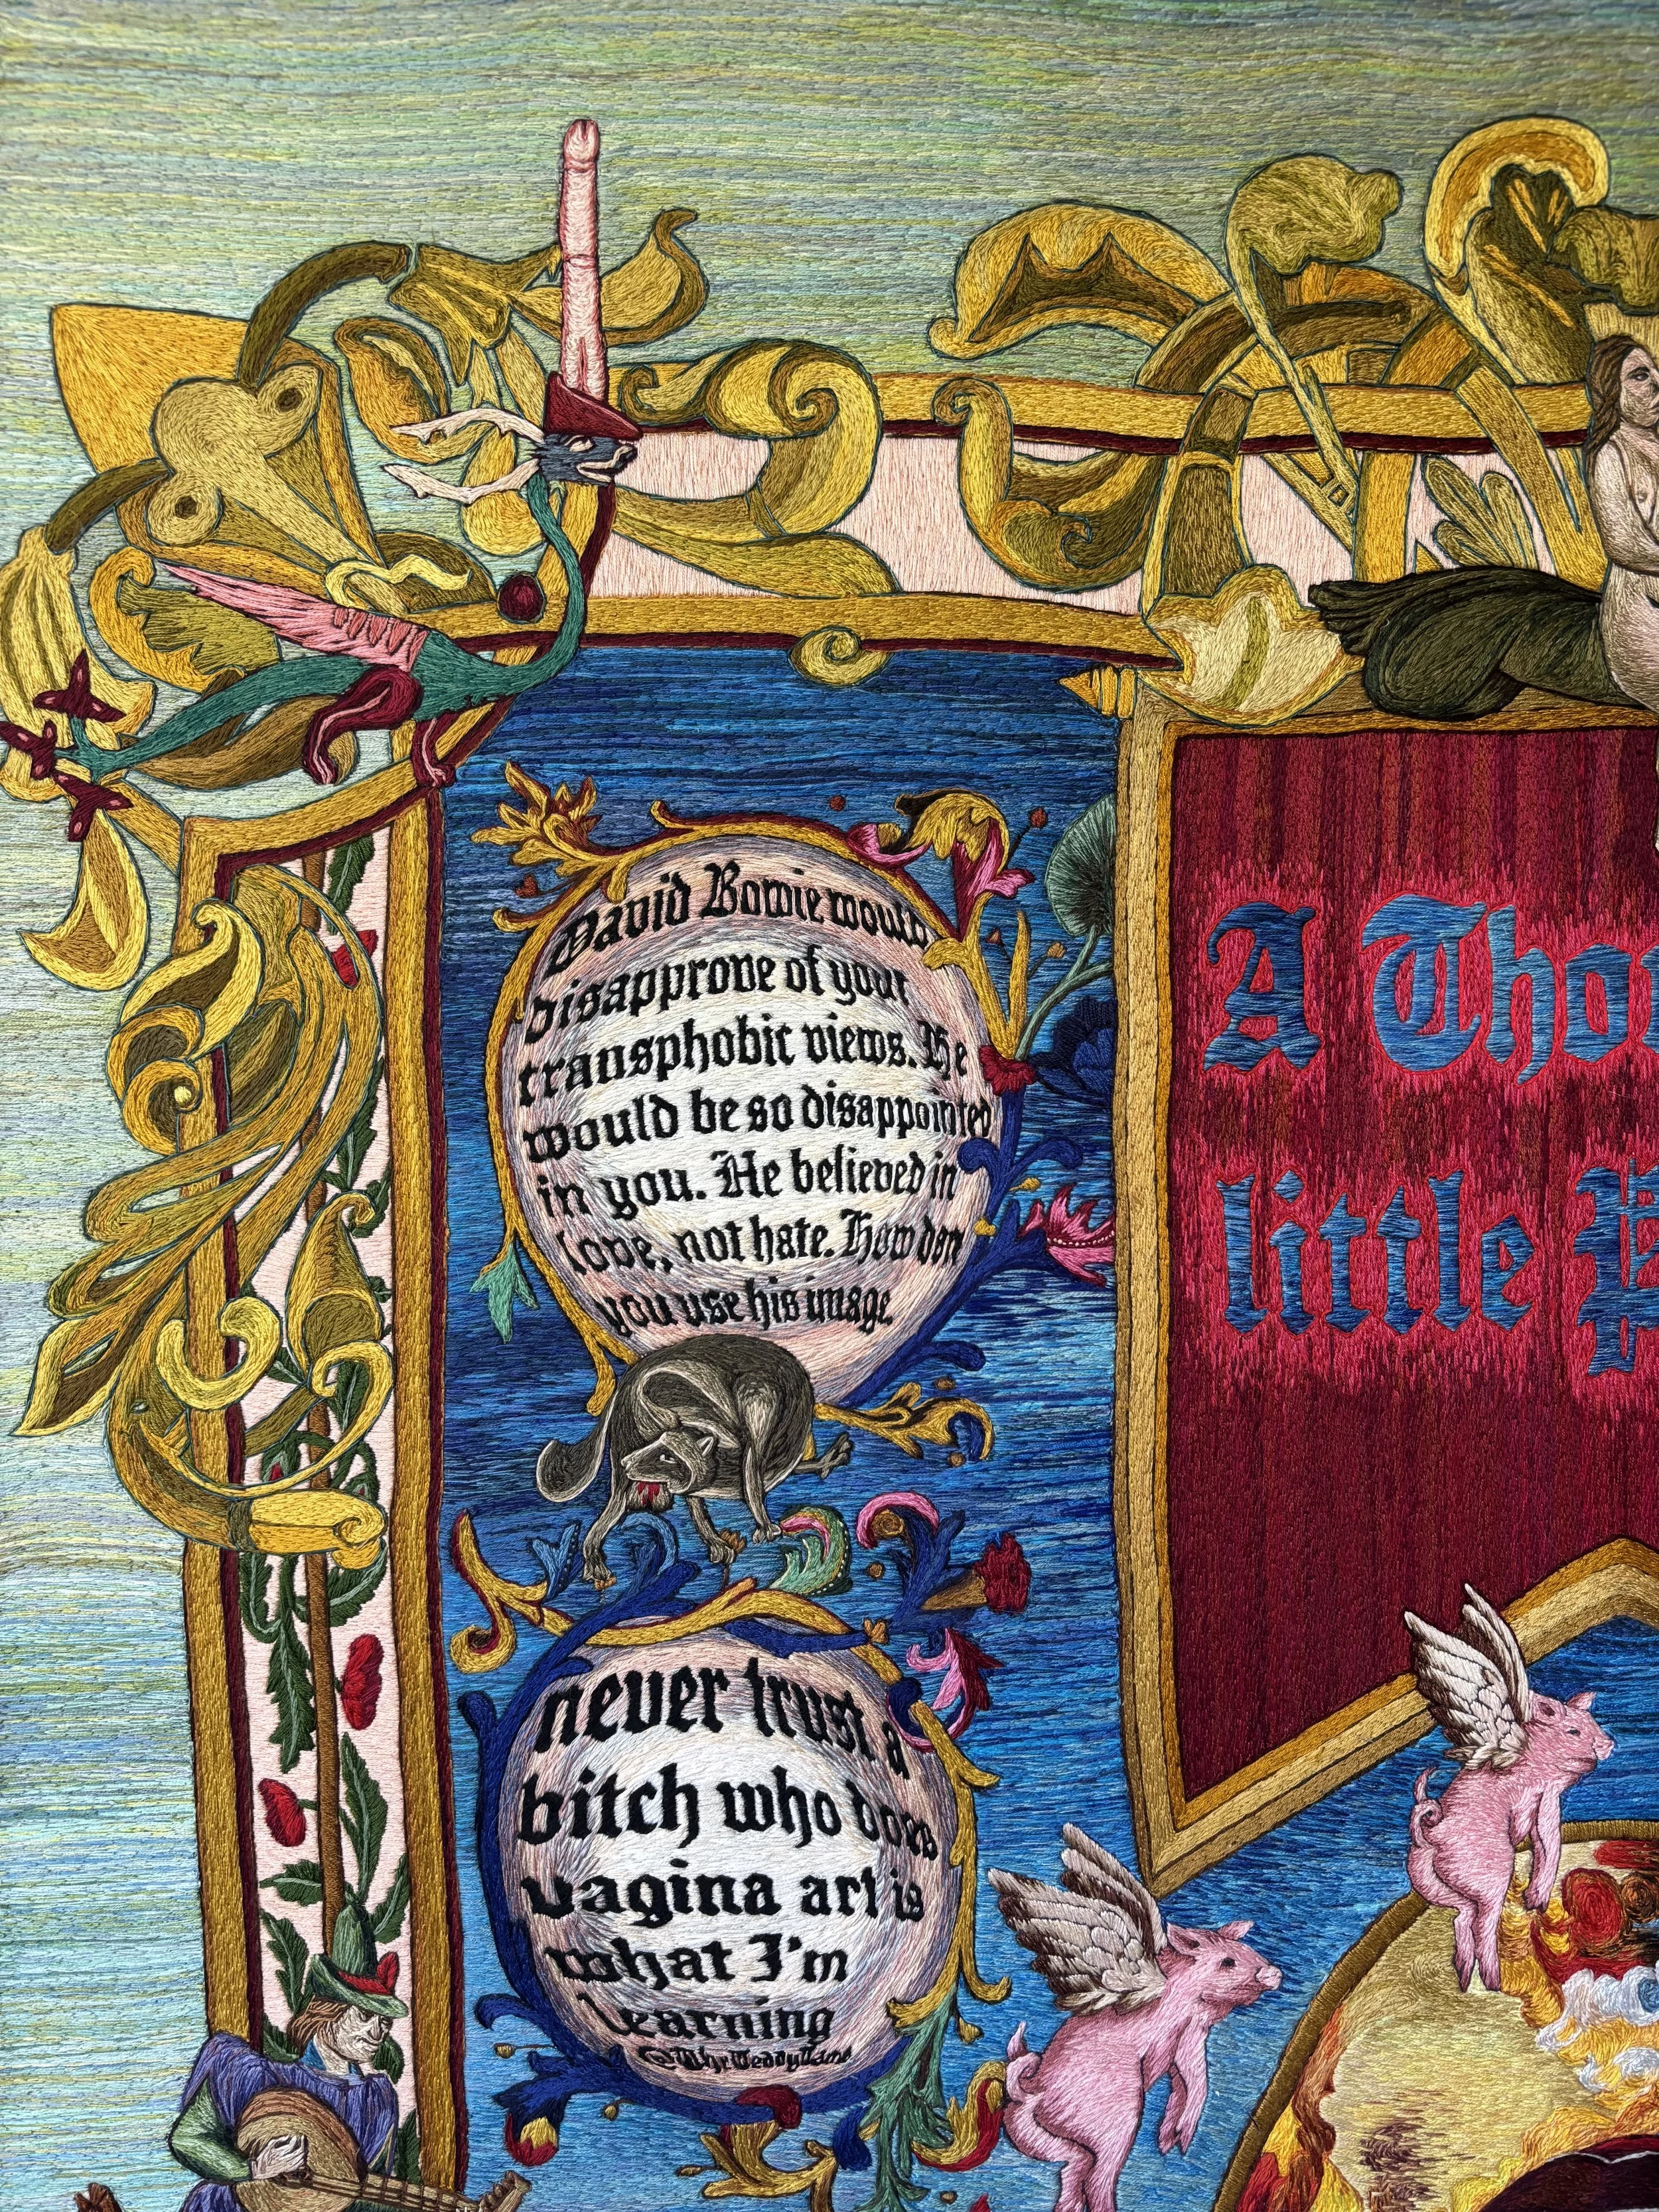 David Bowie would
disapprove of your
transphobic views. He
would be so disappointed
in you. He believed in
love, not hate. How dare
you use his image.
never trust a
bitch who does
vagina art is
what I'm
learning
A Thou
little